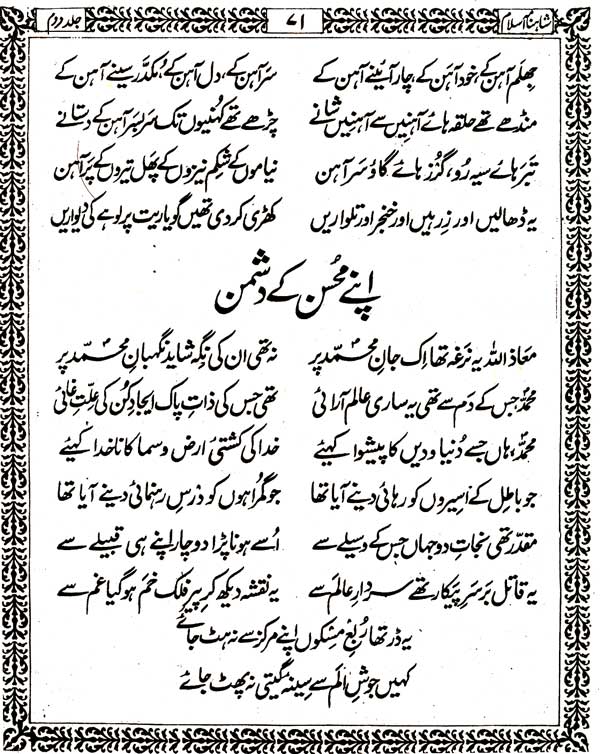 شاہنامہ اسلام ۷۱ جلد دوم
جھلم آہن کے، خود آہن کے، چار آئینے آہن کے سر آہن کے، دل آہن کے، مکدّر سینے آہن کے
منڈھے تھے حلقہ ہائے آہنیں سے آہنیں شانے چڑھے تھے کُہنیوں تک سربسر آہن کے دستانے
تبر ہائے سیہ رُو، گُرز ہائے گاؤ سر آہن نیاموں کے شِکم نیزوں کے پھل تیروں کے پَر آہن
یہ ڈھالیں اور زِرہیں اور خنجر اور تلواریں کھڑی کر دی تھیں گویا ریت پر لوہے کی دیواریں
اپنے مُحسن کے دشمن
معاذ اللہ یہ نرغہ تھا اِک جانِ محمدؐ پر نہ تھی ان کی نِگہ شاید نگہبانِ محمدؐ پر
محمدؐ جس کے دَم سے تھی یہ ساری عالم آرائی تھی جس کی ذاتِ پاک ایجادِ کُن کی علّتِ غائی
محمدؐ، ہاں جسے دُنیا و دیں کا پیشوا کہیئے خدا کی کشتیٔ ارض و سما کا ناخدا کہیئے
جو باطِل کے اَسیروں کو رہائی دینے آیا تھا جو گمراہوں کو درسِ رہنمائی دینے آیا تھا
مقدّر تھی نجاتِ دو جہاں جس کے وسیلے سے اُسے ہونا پڑا دوچار اپنے ہی قبیلے سے
یہ قاتل برسرِ پیکار تھے سردارِ عالم سے یہ نقشہ دیکھ کر پیرِ فلک خَم ہو گیا غم سے
یہ ڈر تھا رُبعِ مسکوں اپنے مرکز سے نہ ہٹ جائے
کہیں جوشِ اَلم سے سینہ گیتی نہ پھٹ جائے